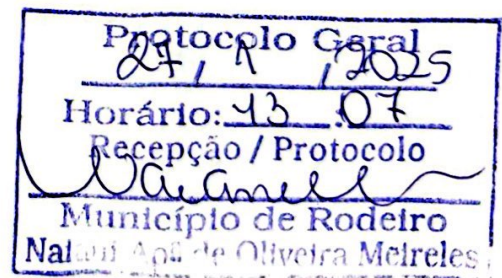 Protocolo Geral
27 / 1 / 2025
Horário: 13 :07
Recepção / Protocolo
Município de Rodeiro
de Oliveira Meireles